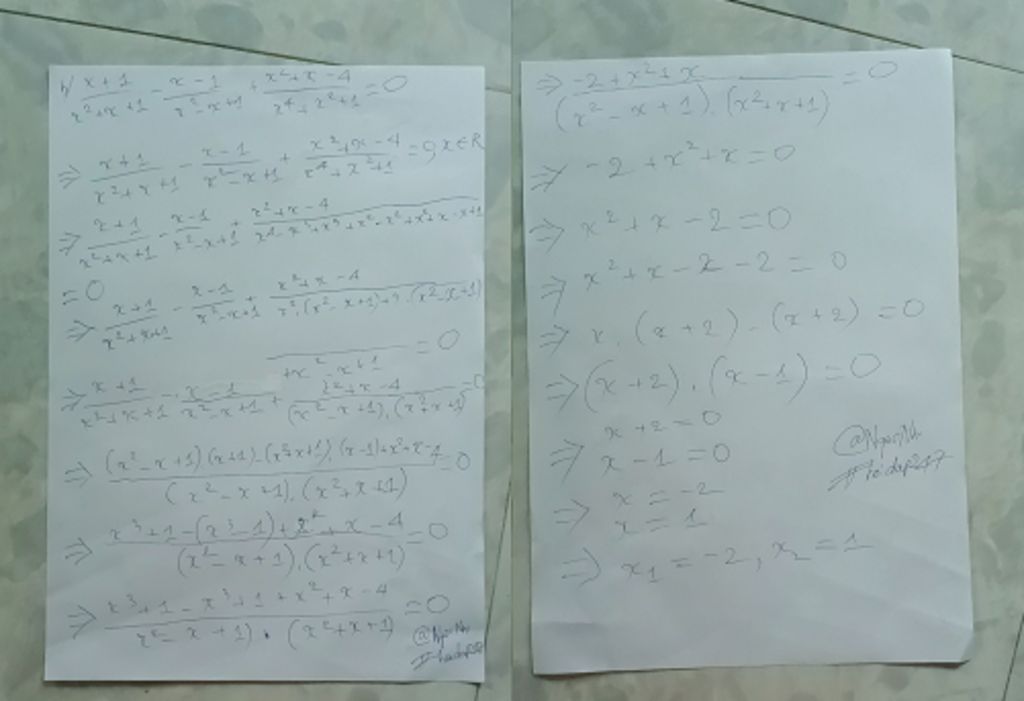 b) x+1/x²+x+1 - x-1/x²-x+1 + x²+x-4/x⁴+x²+1 = 0
=> x+1/x²+x+1 - x-1/x²-x+1 + x²+x-4/x⁴+x²+1 = 0, x∈R
=> x+1/x²+x+1 - x-1/x²-x+1 + x²+x-4/x⁴-x³+x³+x²-x²+x²+x-x+1
= 0
=> x+1/x²+x+1 - x-1/x²-x+1 + x²+x-4/x².(x²-x+1)+x.(x²-x+1)
+x²-x+1 = 0
=> x+1/x²+x+1 - x-1/x²-x+1 + x²+x-4/(x²-x+1).(x²+x+1) = 0
=> (x²-x+1).(x+1)-(x²+x+1).(x-1)+x²+x-4/(x²-x+1).(x²+x+1) = 0
=> x³+1-(x³-1)+x²+x-4/(x²-x+1).(x²+x+1) = 0
=> x³+1-x³+1+x²+x-4/x²-x+1).(x²+x+1) = 0
=> -2+x²+x/(x²-x+1).(x²+x+1) = 0
=> -2+x²+x=0
=> x²+x-2=0
=> x²+x-2-2=0
=> x.(x+2)-(x+2)=0
=> (x+2).(x-1)=0
=> x+2=0
x-1=0
=> x=-2
x=1
=> x₁=-2, x₂=1